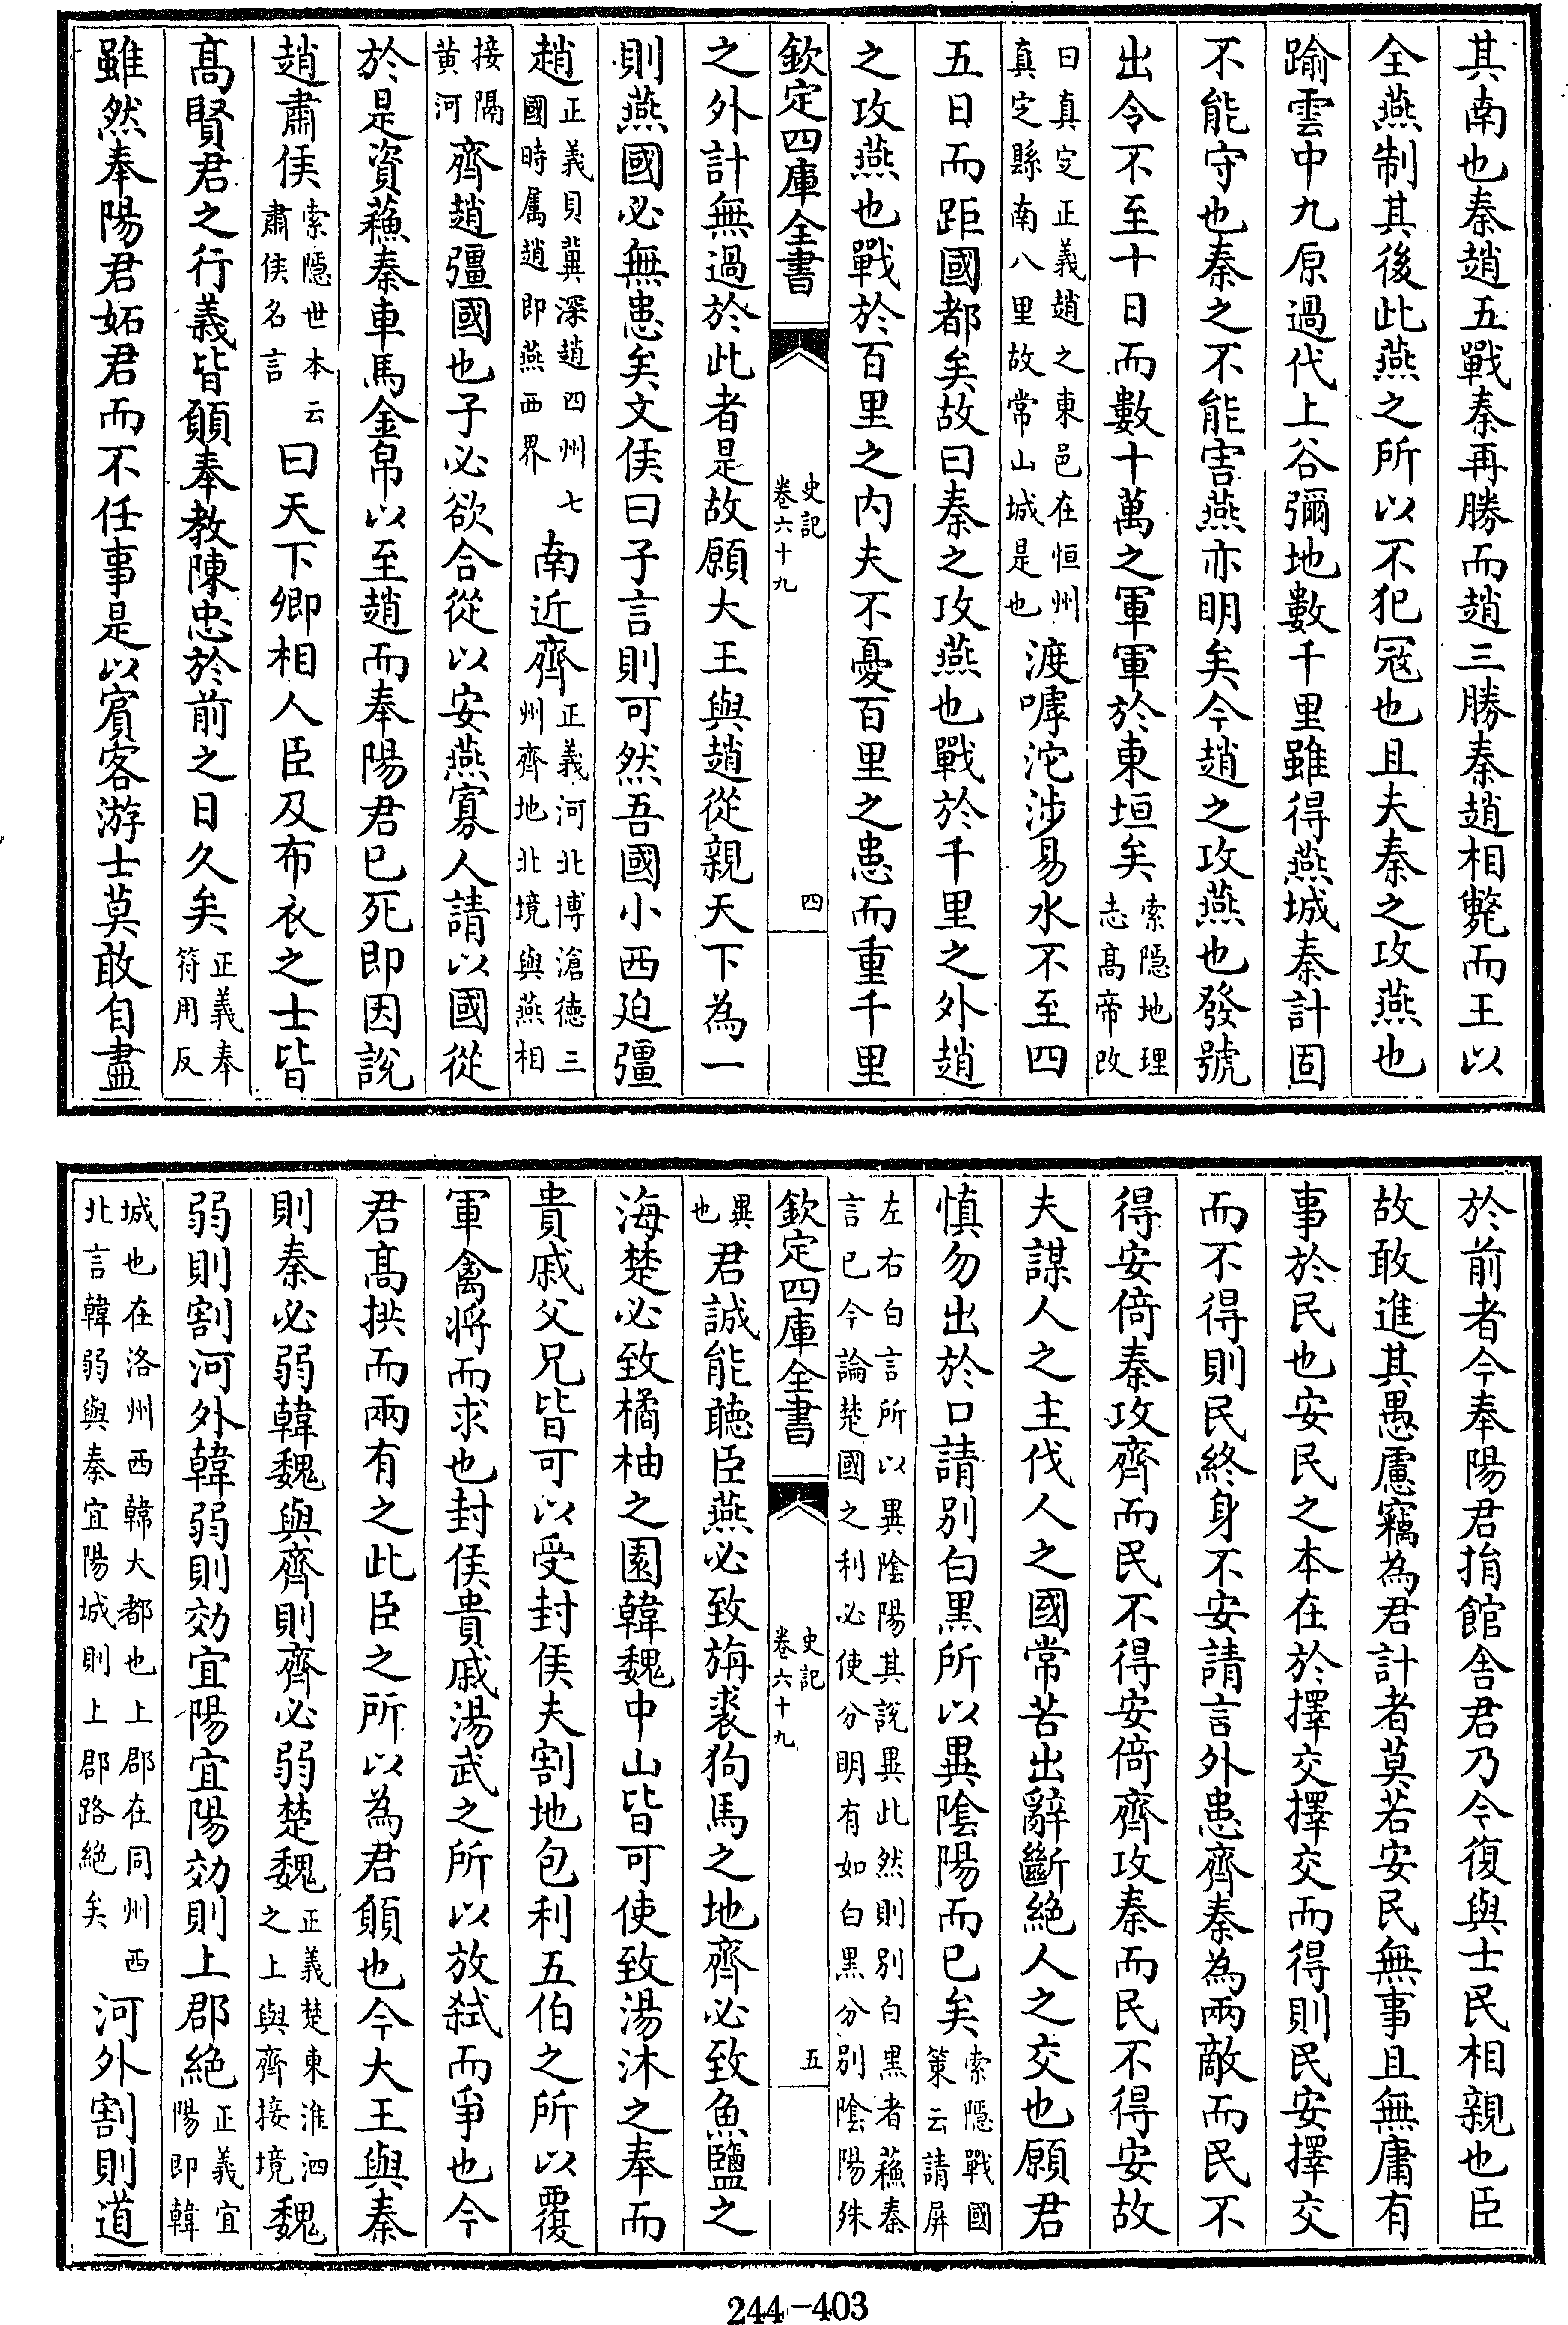 其南也秦趙五戰秦再勝而趙三勝秦趙相斃而王以
全燕制其後此燕之所以不犯冦也且夫秦之攻燕也
踰雲中九原過代上谷彌地數千里雖得燕城秦計固
不能守也秦之不能害燕亦明矣今趙之攻燕也發號
出令不至十日而數十萬之軍軍於東垣矣索隠地理志髙帝改
曰真定正義趙之東邑在恒州真定縣南八里故常山城是也渡嘑沱涉易水不至四
五日而距國都矣故曰秦之攻燕也戰於千里之外趙
之攻燕也戰於百里之内夫不憂百里之患而重千里
欽定四庫全書 史記卷六十九 四
之外計無過於此者是故願大王與趙從親天下為一
則燕國必無患矣文侯曰子言則可然吾國小西迫彊
趙正義貝冀深趙四州七國時屬趙即燕西界南近齊正義河北博滄徳三州齊地北境與燕相
接隔黄河齊趙彊國也子必欲合從以安燕寡人請以國從
於是資蘓秦車馬金帛以至趙而奉陽君已死即因說
趙肅侯索隠世本云肅侯名言曰天下卿相人臣及布衣之士皆
髙賢君之行義皆願奉教陳忠於前之日久矣正義奉符用反
雖然奉陽君妬君而不任事是以賔客游士莫敢自盡
於前者今奉陽君捐館舍君乃今復與士民相親也臣
故敢進其愚慮竊為君計者莫若安民無事且無庸有
事於民也安民之本在於擇交擇交而得則民安擇交
而不得則民終身不安請言外患齊秦為兩敵而民不
得安倚秦攻齊而民不得安倚齊攻秦而民不得安故
夫謀人之主伐人之國常苦出辭斷絶人之交也願君
慎勿出於口請别白黒所以異陰陽而已矣索隠戰國策云請屏
左右白言所以異陰陽其說異此然則别白黒者蘓秦言已今論楚國之利必使分明有如白黒分别隂陽殊
欽定四庫全書 史記卷六十九 五
異也君誠能聽臣燕必致旃裘狗馬之地齊必致魚鹽之
海楚必致橘柚之園韓魏中山皆可使致湯沐之奉而
貴戚父兄皆可以受封侯夫割地包利五伯之所以覆
軍禽將而求也封侯貴戚湯武之所以放弑而爭也今
君髙拱而兩有之此臣之所以為君願也今大王與秦
則秦必弱韓魏與齊則齊必弱楚魏正義楚東淮泗之上與齊接境魏
弱則割河外韓弱則効宜陽宜陽効則上郡絶正義宜陽即韓
城也在洛州西韓大都也上郡在同州西北言韓弱與秦宜陽城則上郡路絶矣河外割則道
244-403